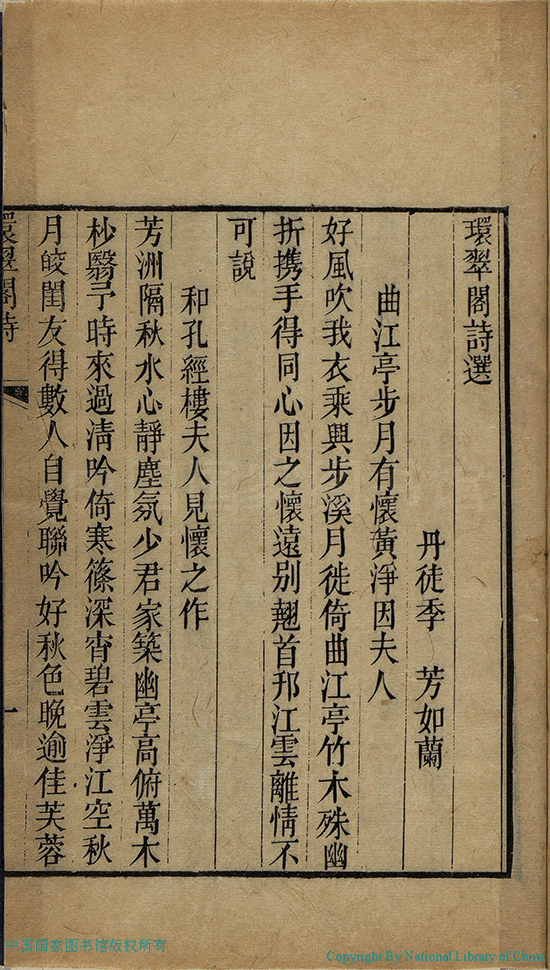 環翠閣詩選
丹徒季　芳如蘭
曲江亭步月有懷黃淨因夫人
好風吹我衣乘興步溪月徙倚曲江亭竹木殊幽
折携手得同心因之懷遠别翹首邗江雲離情不
可說
和孔經樓夫人見懷之作
芳洲隔秋水心靜塵氛少君家築幽亭高俯萬木
杪翳予時來過清吟倚寒篠深宵碧雲淨江空秋
月皎閨友得數人自覺聯吟好秋色晚逾佳芙蓉
環翠閣詩
一
中国国家图书馆版权所有
Copyright By National Library of China